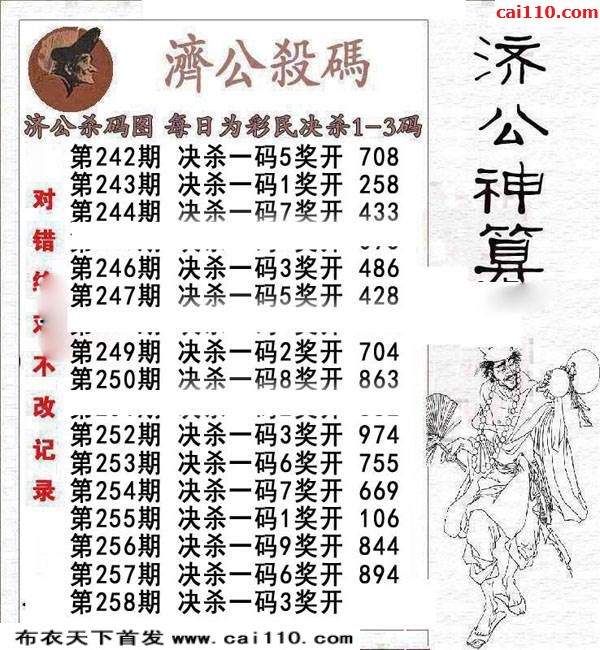 cai110.com
濟公殺碼
济公杀码图 每日为彩民决杀1-3码
第242期 决杀一码5奖开 708
第243期 决杀一码1奖开 258
第244期 决杀一码7奖开 433
第246期 决杀一码3奖开 486
第247期 决杀一码5奖开 428
第249期 决杀一码2奖开 704
第250期 决杀一码8奖开 863
第252期 决杀一码3奖开 974
第253期 决杀一码6奖开 755
第254期 决杀一码7奖开 669
第255期 决杀一码1奖开 106
第256期 决杀一码9奖开 844
第257期 决杀一码6奖开 894
第258期 决杀一码3奖开
对错
不改记录
济公神算
布衣天下首发 www.cai110.com